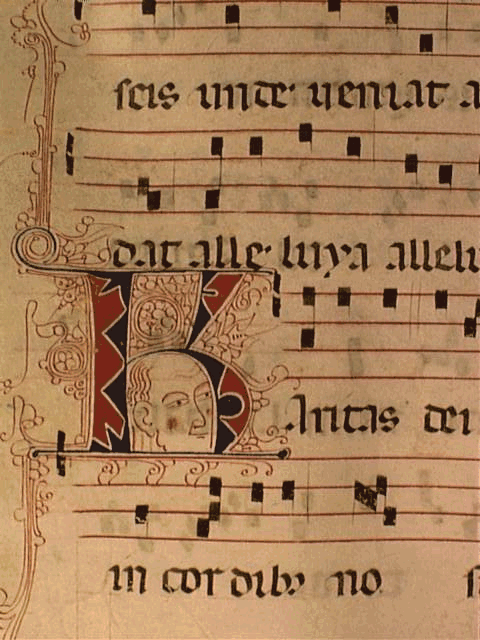 scis unde veniat a
dat alle luya allelu
Karitas dei
in cordibꝫ no s